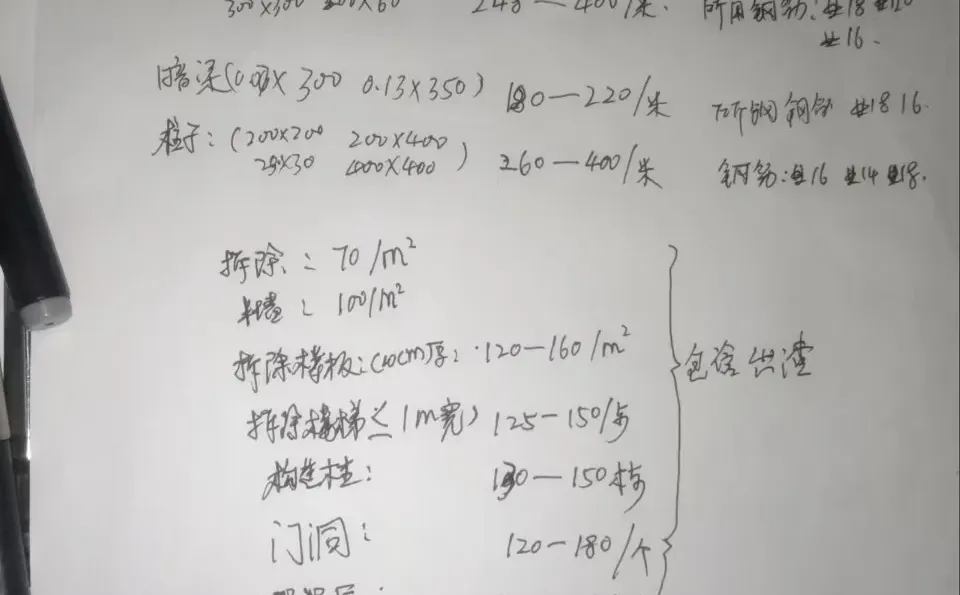 300×300 200×60 240—400/米 所用钢筋:⌀18 ⌀20
⌀16.
暗梁( × 300 0.13×350) 180—220/米 所钢钢筋 ⌀18 16.
柱子:(200×200 200×400 260—400/米 钢筋:⌀16 ⌀14 ⌀18.
25×30 400×400)
拆除:70/m²
墙:100/m²
拆除楼板:(10cm厚:120—160/m²
拆除楼梯≤1m宽) 125—150/步
构造柱: 130—150
门洞: 120—180/个
包含 渣